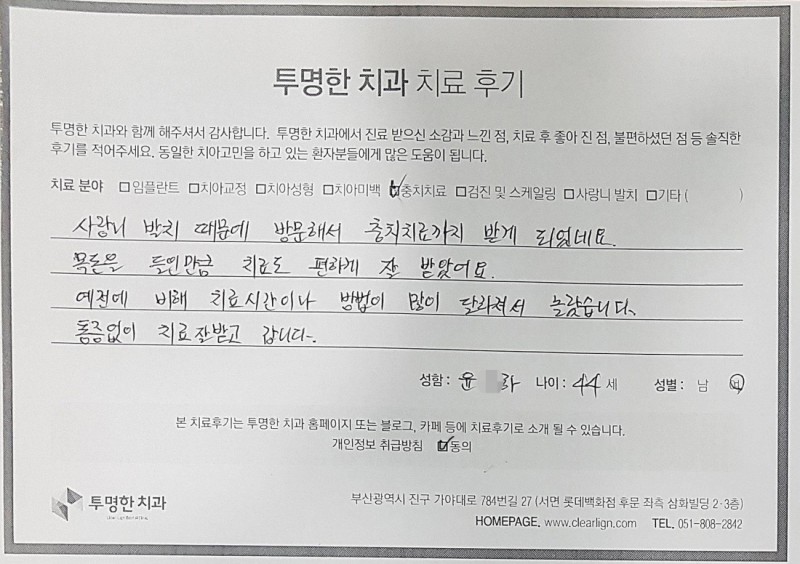 투명한 치과 치료 후기
투명한 치과와 함께 해주셔서 감사합니다. 투명한 치과에서 진료 받으신 소감과 느낀 점, 치료 후 좋아 진 점, 불편하셨던 점 등 솔직한
후기를 적어주세요. 동일한 치아고민을 하고 있는 환자분들에게 많은 도움이 됩니다.
치료 분야 □임플란트 □치아교정 □치아성형 □치아미백 ☑충치치료 □검진 및 스케일링 □사랑니 발치 □기타 ( )
사랑니 발치 때문에 방문해서 충치치료까지 받게 되었네요.
목돈은 들인만큼 치료도 편하게 잘 받았어요.
예전에 비해 치료시간이나 방법이 많이 달라져서 놀랐습니다.
통증없이 치료잘받고 갑니다~.
성함 : 윤 라 나이 : 44 세 성별 : 남 여
본 치료후기는 투명한 치과 홈페이지 또는 블로그, 카페 등에 치료후기로 소개 될 수 있습니다.
개인정보 취급방침 ☑동의
투명한 치과
부산광역시 진구 가야대로 784번길 27 (서면 롯데백화점 후문 좌측 삼화빌딩 2·3층)
HOMEPAGE. www.clearlign.com TEL. 051-808-2842